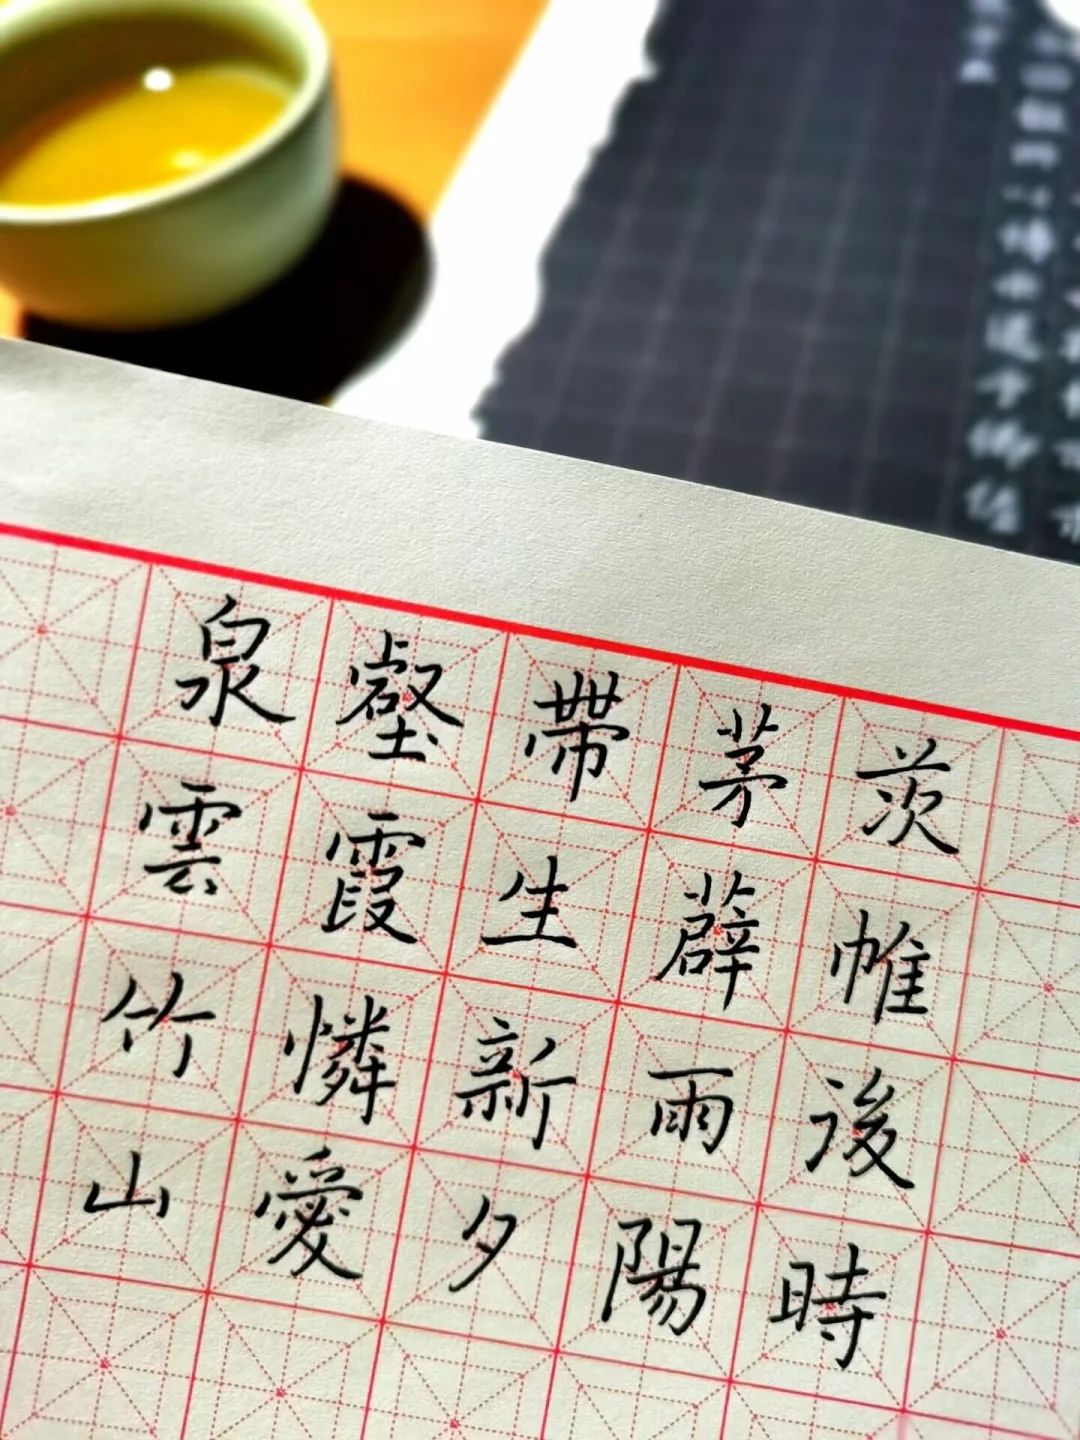 泉壑帶茅茨
雲霞生薜帷
竹憐新雨後
山愛夕陽時